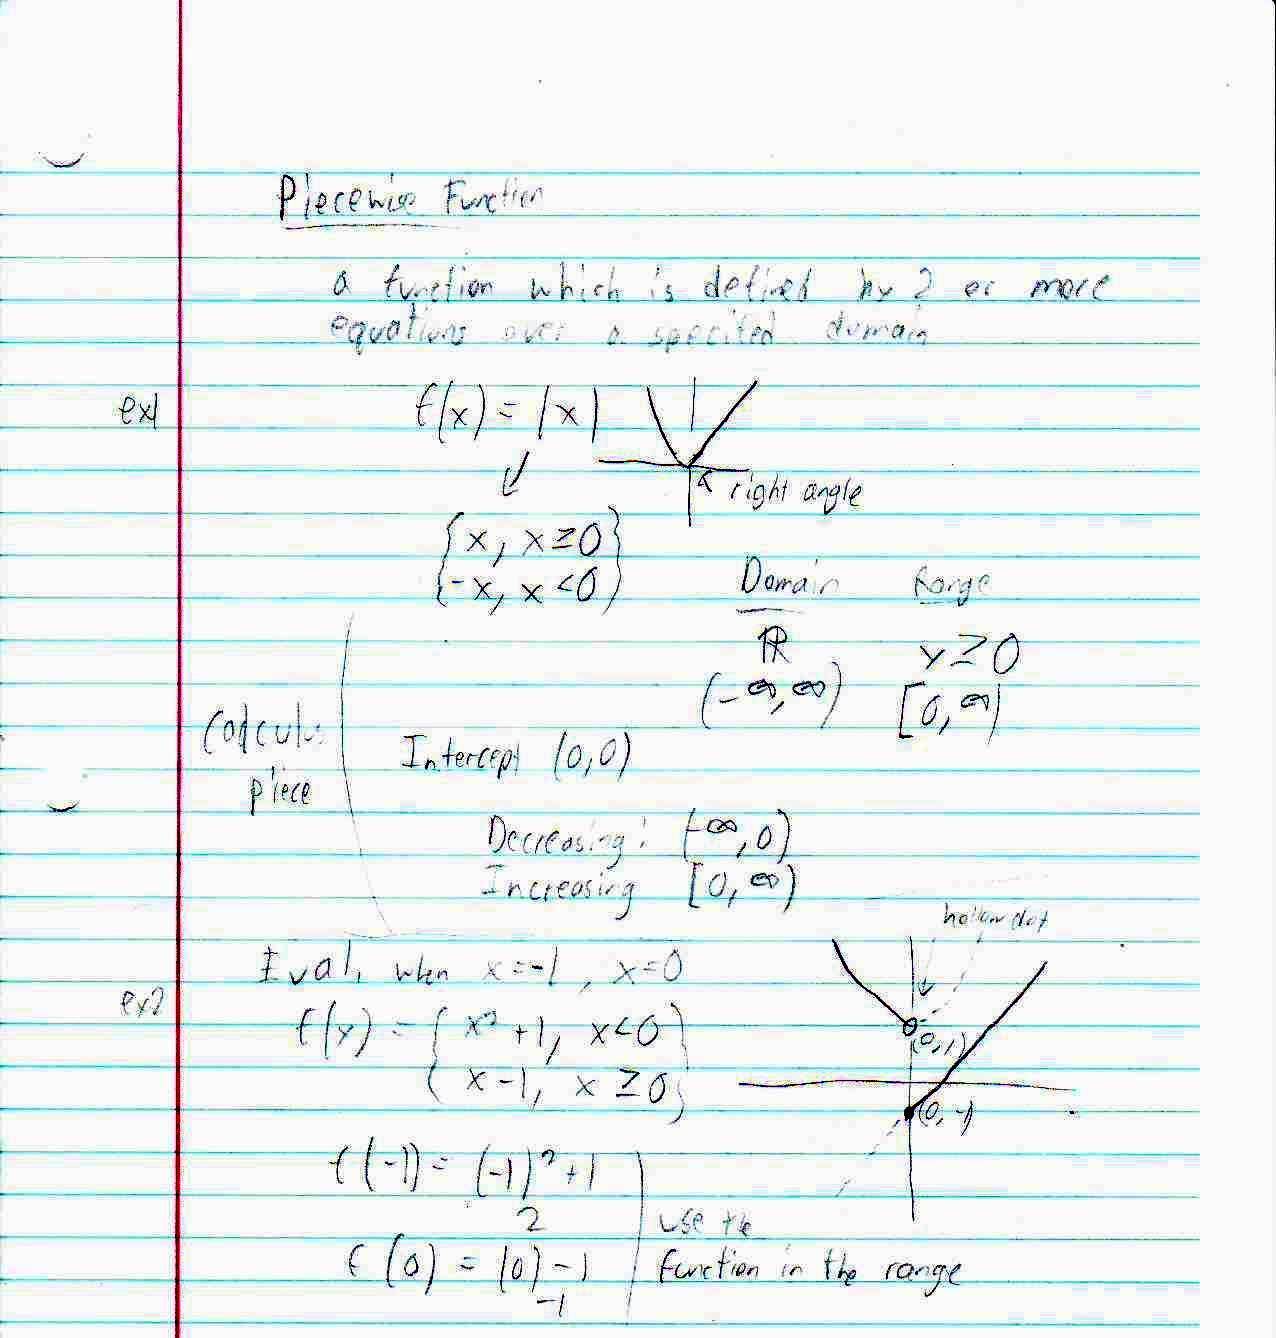 Piecewise Function
a function which is defined by 2 or more
equations over a specified domain
ex1
f(x) = |x|
right angle
{x, x≥0}
{-x, x<0}
Domain Range
ℝ y≥0
(-∞,∞) [0,∞)
Calculus
piece
Intercept (0,0)
Decreasing: (-∞,0)
Increasing [0,∞)
hollow dot
Eval, when x=-1, x=0
ex2
f(x) = {x²+1, x<0}
{x-1, x≥0}
(0,1)
(0,-1)
f(-1) = (-1)²+1
2
f(0) = (0)-1
-1
use the
function in the range